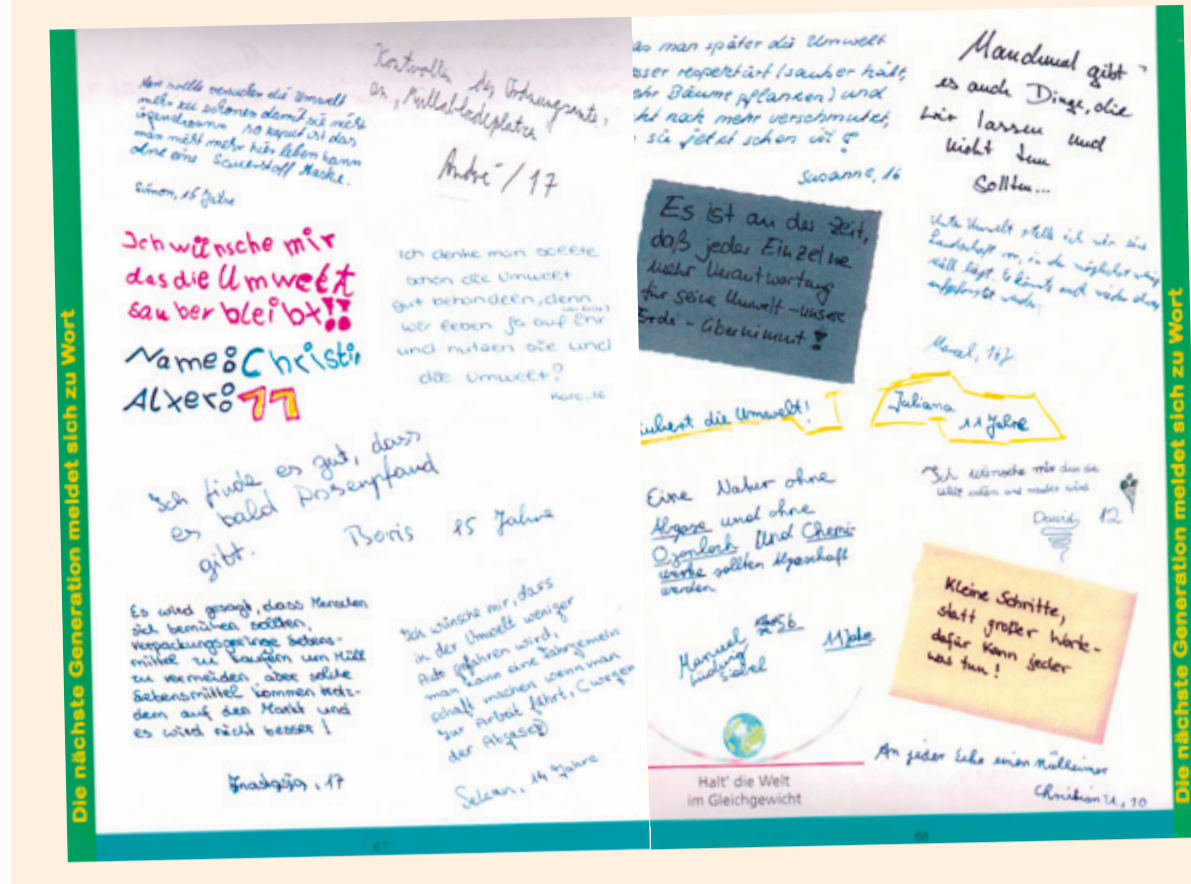 Die nächste Generation meldet sich zu Wort
Man sollte versuchen die Umwelt
mehr zu schonen damit sie nicht
irgendwann so kaputt ist das
man nicht mehr hier leben kann
ohne eine Sauerstoff Maske.
Simon, 15 Jahre
Kontrollen des Ordnungsamts,
an „Müllabladeplätzen
André / 17
Ich wünsche mir
das die Umwelt
sauber bleibt!!
Name: Christin
Alter: 11
Ich denke man sollte
schon die Umwelt
gut behandeln, denn
wir leben ja auf ihr
und nutzen sie und
die Umwelt?
16
Ich finde es gut, dass
es bald Dosenpfand
gibt.
Boris 15 Jahre
Es wird gesagt, dass Menschen
sich bemühen sollten,
verpackungsgeringe Lebens-
mittel zu kaufen um Müll
zu vermeiden, aber solche
Lebensmittel kommen trotz-
dem auf den Markt und
es wird nicht besser!
, 17
Ich wünsche mir, dass
in der Umwelt weniger
Auto gefahren wird,
man kann eine Fahrgemein
schaft machen wenn man
zur Arbeit fährt, (wegen
der Abgase)
14 Jahre
67
as man später die Umwelt
sser respektiert (sauber hält,
ehr Bäume pflanzen) und
cht noch mehr verschmutzt,
sie jetzt schon ist
Susanne, 16
Manchmal gibt
es auch Dinge, die
wir lassen und
nicht tun
sollten...
Es ist an der Zeit,
daß jeder Einzelne
mehr Verantwortung
für seine Umwelt - unsere
Erde - übernimmt!
Unter Umwelt stelle ich mir eine
Landschaft vor, in der möglichst wenig
Müll liegt. Es könnte auch wieder etwas
aufgeforstet werden.
Marcel, 16J
äubert die Umwelt!
Juliana
11 Jahre
Ich wünsche mir das die
Welt
David 12
Eine Natur ohne
Abgase und ohne
Ozonloch Und Chemi-
werke sollten Abgeschaft
werden
Manuel
Ludwig
Siebel
11 Jahre
Kleine Schritte,
statt großer Worte -
dafür kann jeder
was tun!
Halt' die Welt
im Gleichgewicht
An jeder Ecke einen Mülleimer
Christian U., 10
66
Die nächste Generation meldet sich zu Wort